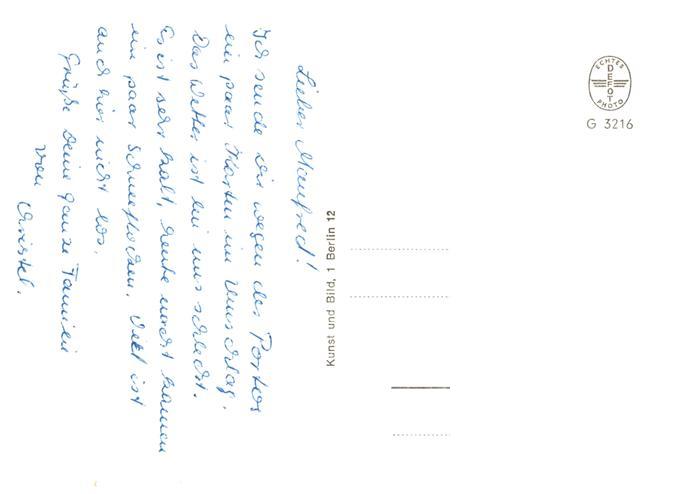 Lieber Manfred!
Ich sende dir wegen des Portos
ein paar Karten im Umschlag.
Das Wetter ist bei uns schlecht.
Es ist sehr kalt, heute kamen
ein paar Schneeflocken. Viel ist
auch hier nicht los.
Grüße Deine ganze Familie
von Christel.
Kunst und Bild, 1 Berlin 12
ECHTES
DEFOT
PHOTO
G 3216